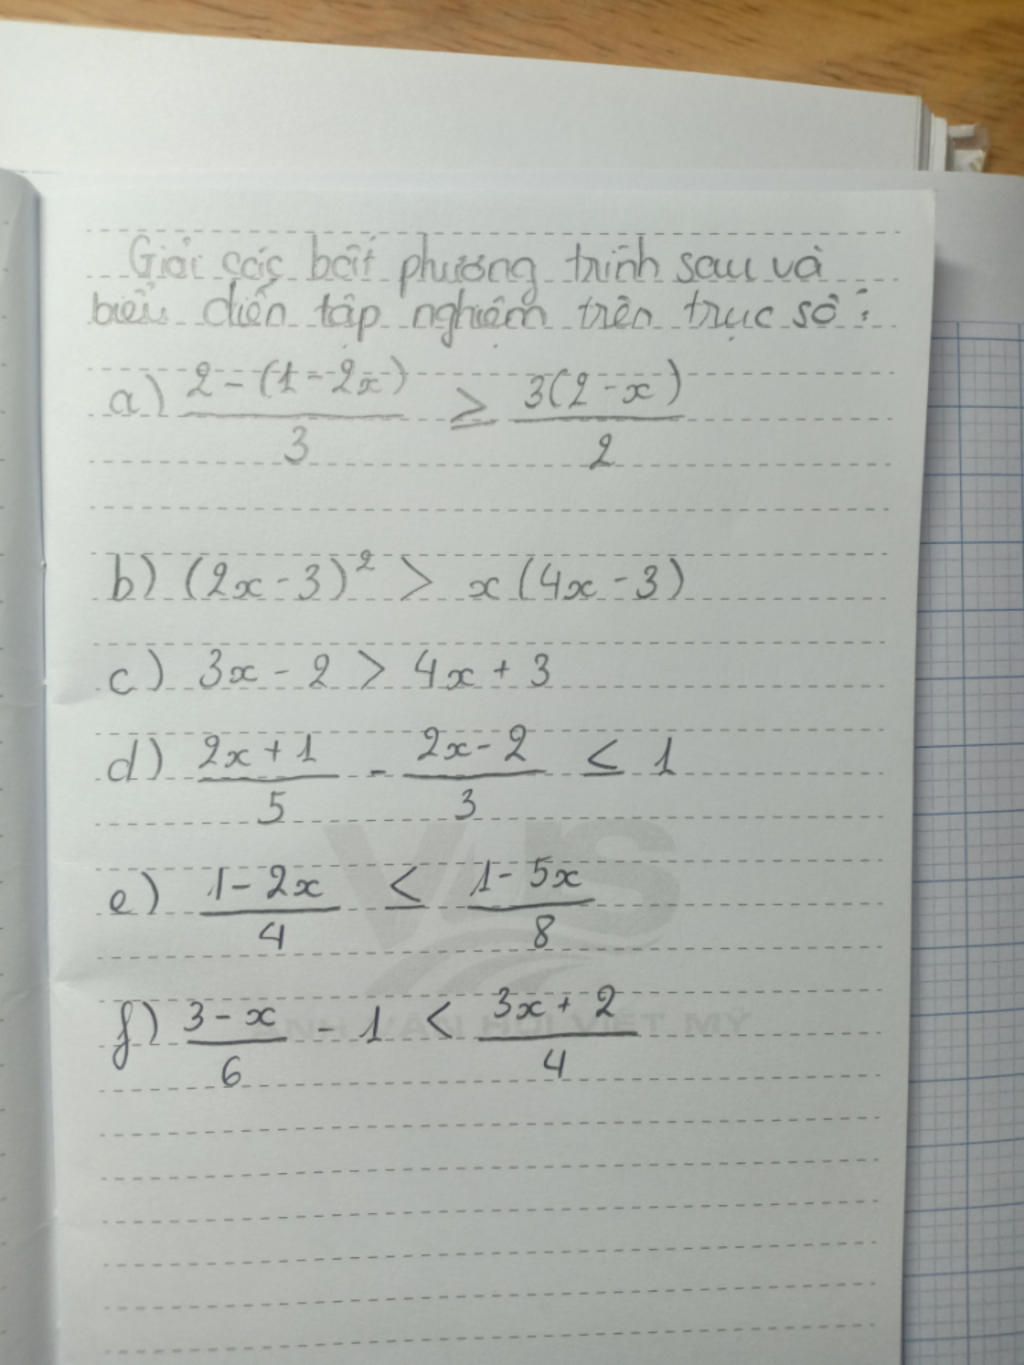 Giải các bất phương trình sau và
biểu diễn tập nghiệm trên trục số :
a) (2-(1-2x))/3 ≥ (3(2-x))/2
b) (2x-3)² > x(4x-3)
c) 3x-2 > 4x+3
d) (2x+1)/5 - (2x-2)/3 ≤ 1
e) (1-2x)/4 ≤ (1-5x)/8
f) (3-x)/6 - 1 < (3x+2)/4
VUS
ANH VĂN HỘI VIỆT MỸ